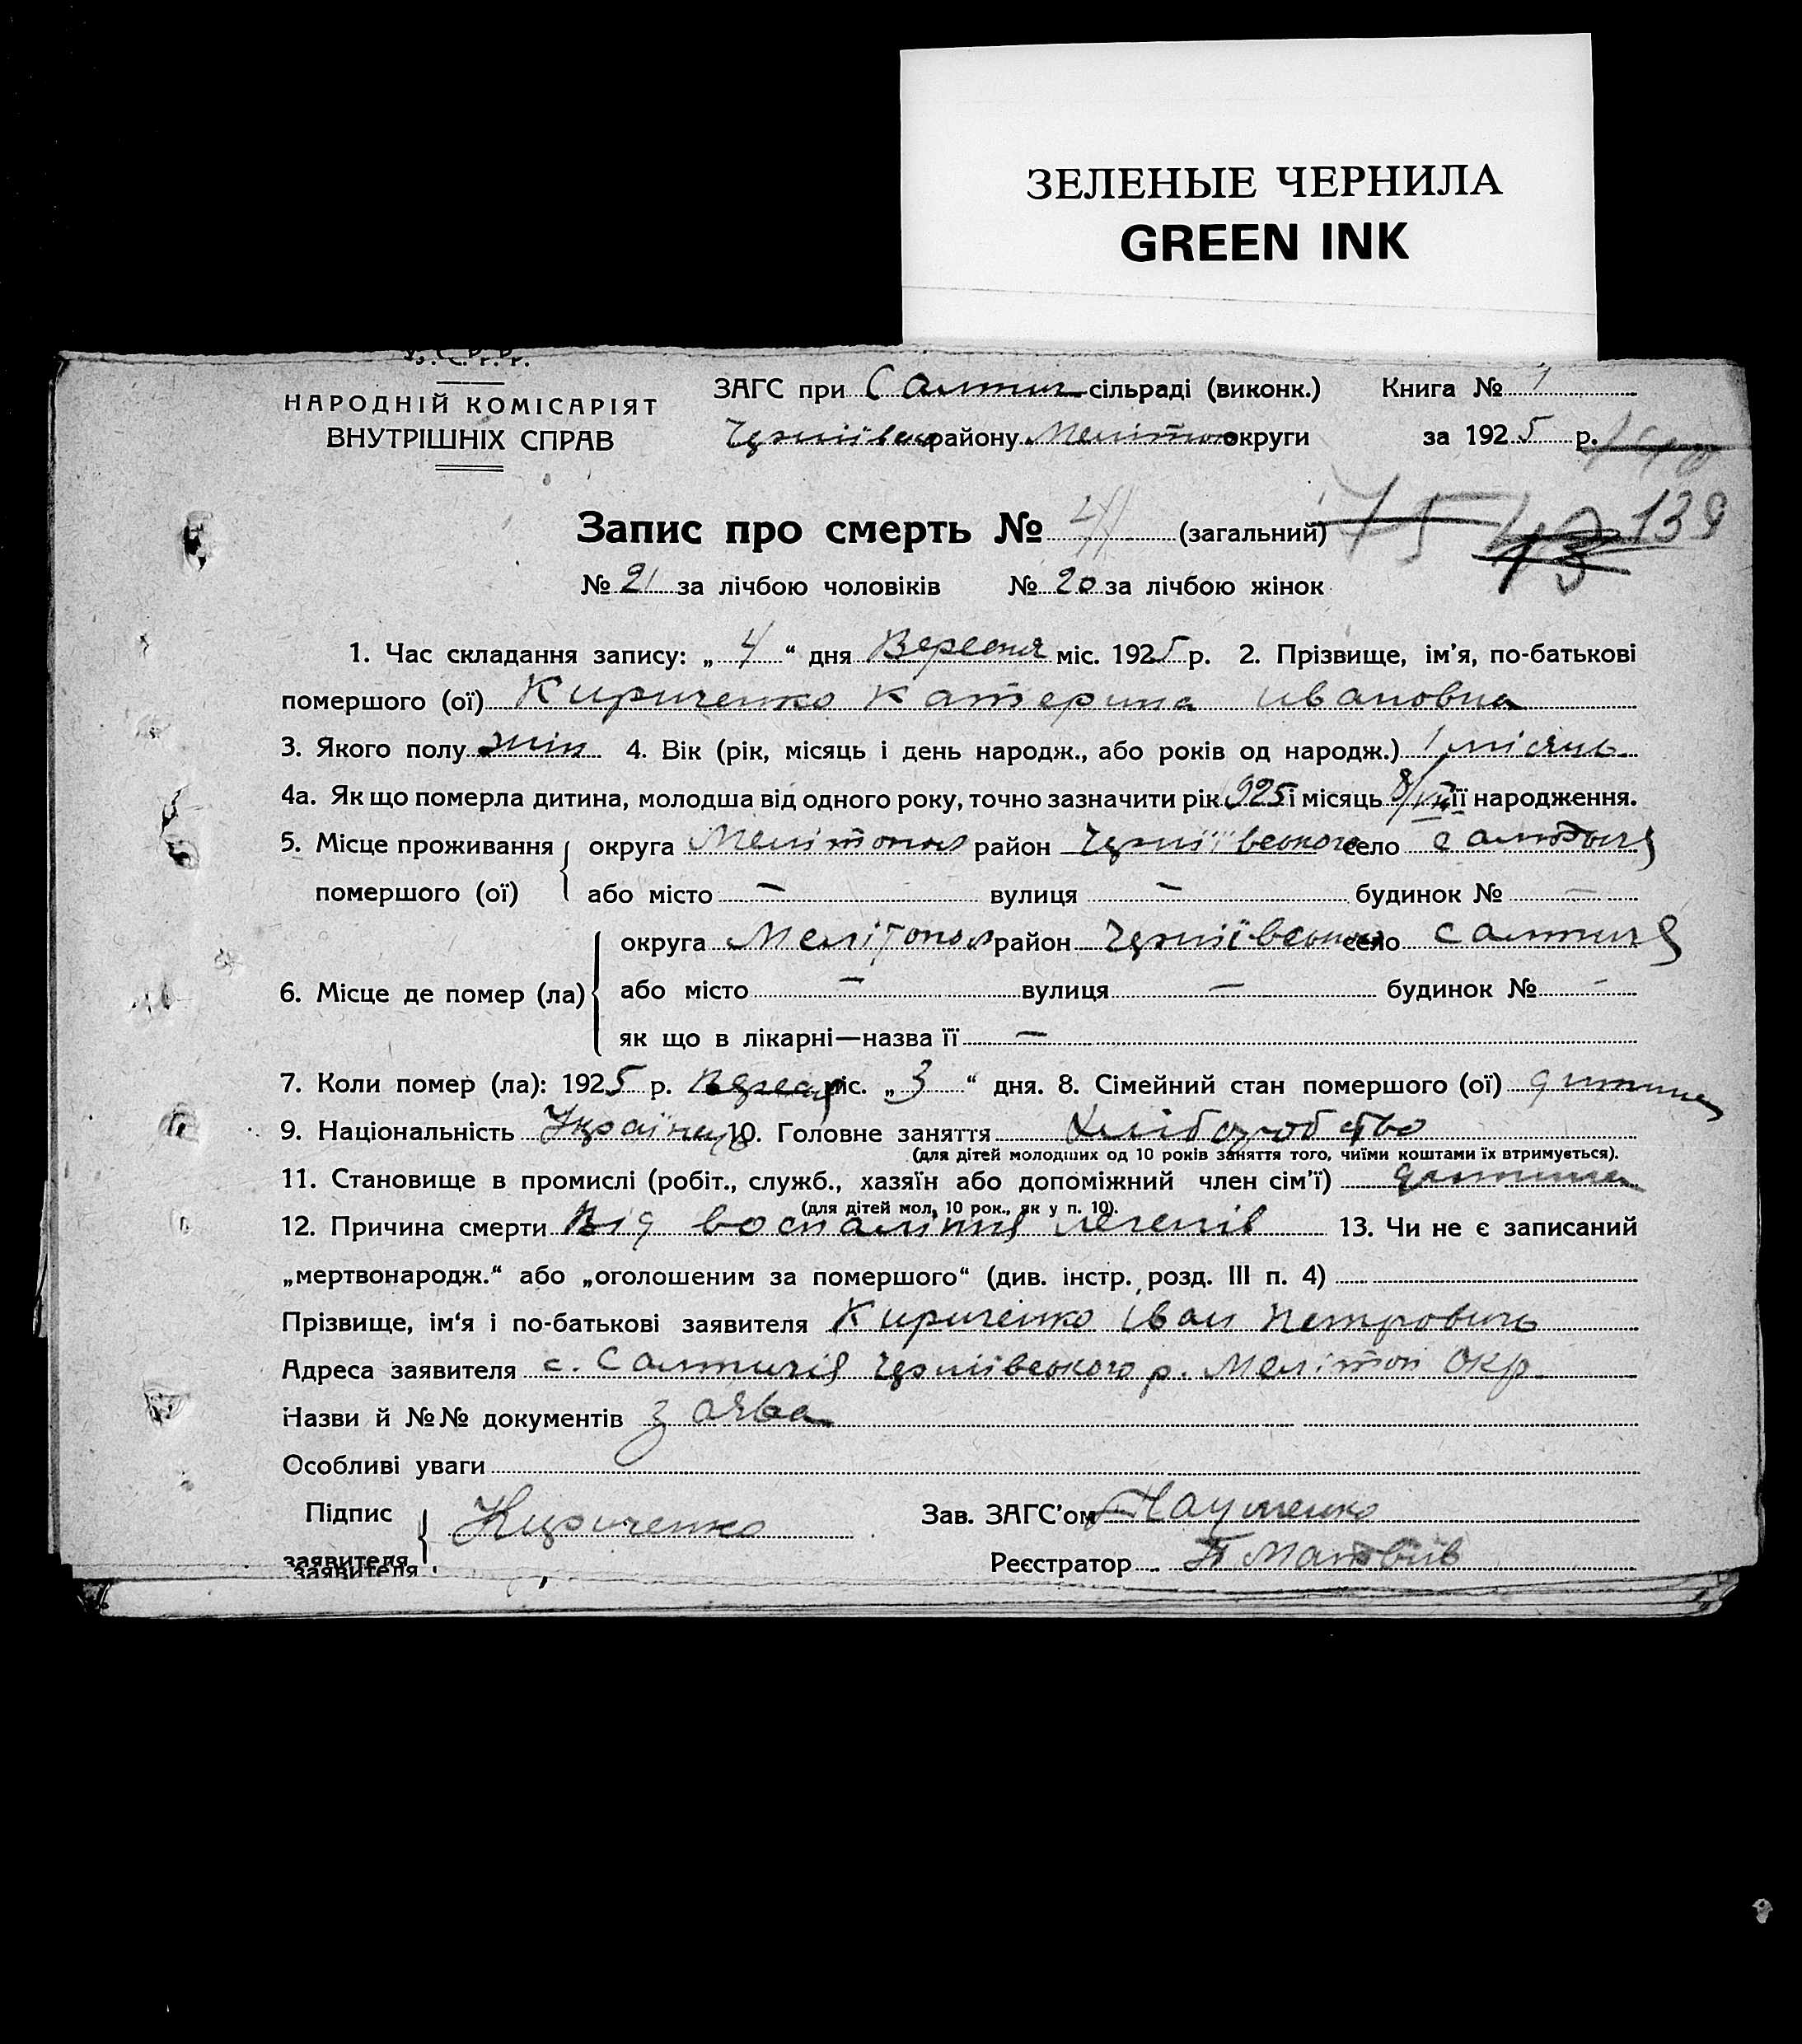 ЗЕЛЕНЫЕ ЧЕРНИЛА
GREEN INK
У. С. Р. Р.
НАРОДНІЙ КОМІСАРІЯТ
ВНУТРІШНІХ СПРАВ
ЗАГС при Салтич сільраді (виконк.) Книга № 1
району Меліто округи за 1925 р.
75 139
Запис про смерть № 41 (загальний)
№ 21 за лічбою чоловіків № 20 за лічбою жінок
1. Час складання запису: „ 4 “ дня Вересня міс. 1925 р. 2. Прізвище, ім’я, по-батькові
помершого (ої) Кириченко Катерина ивановна
3. Якого полу жін 4. Вік (рік, місяць і день народж., або років од народж.) 1 місяць
4а. Як що померла дитина, молодша від одного року, точно зазначити рік 925 і місяць 8/VII її народження.
5. Місце проживання округа Мелітопол район село
помершого (ої) або місто — вулиця — будинок № —
округа Мелітопол район село Салтичя
6. Місце де помер (ла) або місто — вулиця — будинок № -
як що в лікарні—назва її —
7. Коли помер (ла): 1925 р. міс. „ 3 “ дня. 8. Сімейний стан помершого (ої) дитина
9. Національність Українець 10. Головне заняття Хліборобство
(для дітей молодших од 10 років заняття того, чиїми коштами їх втримується).
11. Становище в промислі (робіт., служб., хазяїн або допоміжний член сім’ї) дитина
(для дітей мол. 10 рок., як у п. 10).
12. Причина смерти Від воспаління легенів 13. Чи не є записаний
„мертвонародж.“ або „оголошеним за помершого“ (див. інстр. розд. III п. 4)
Прізвище, ім‘я і по-батькові заявителя Кириченко Іван Петрович
Адреса заявителя с. Салтичія р. Мелітоп Окр
Назви й №№ документів заява
Особливі уваги
Підпис Кириченко Зав. ЗАГС’ом
заявителя Реєстратор П Матвіїв
заявителя